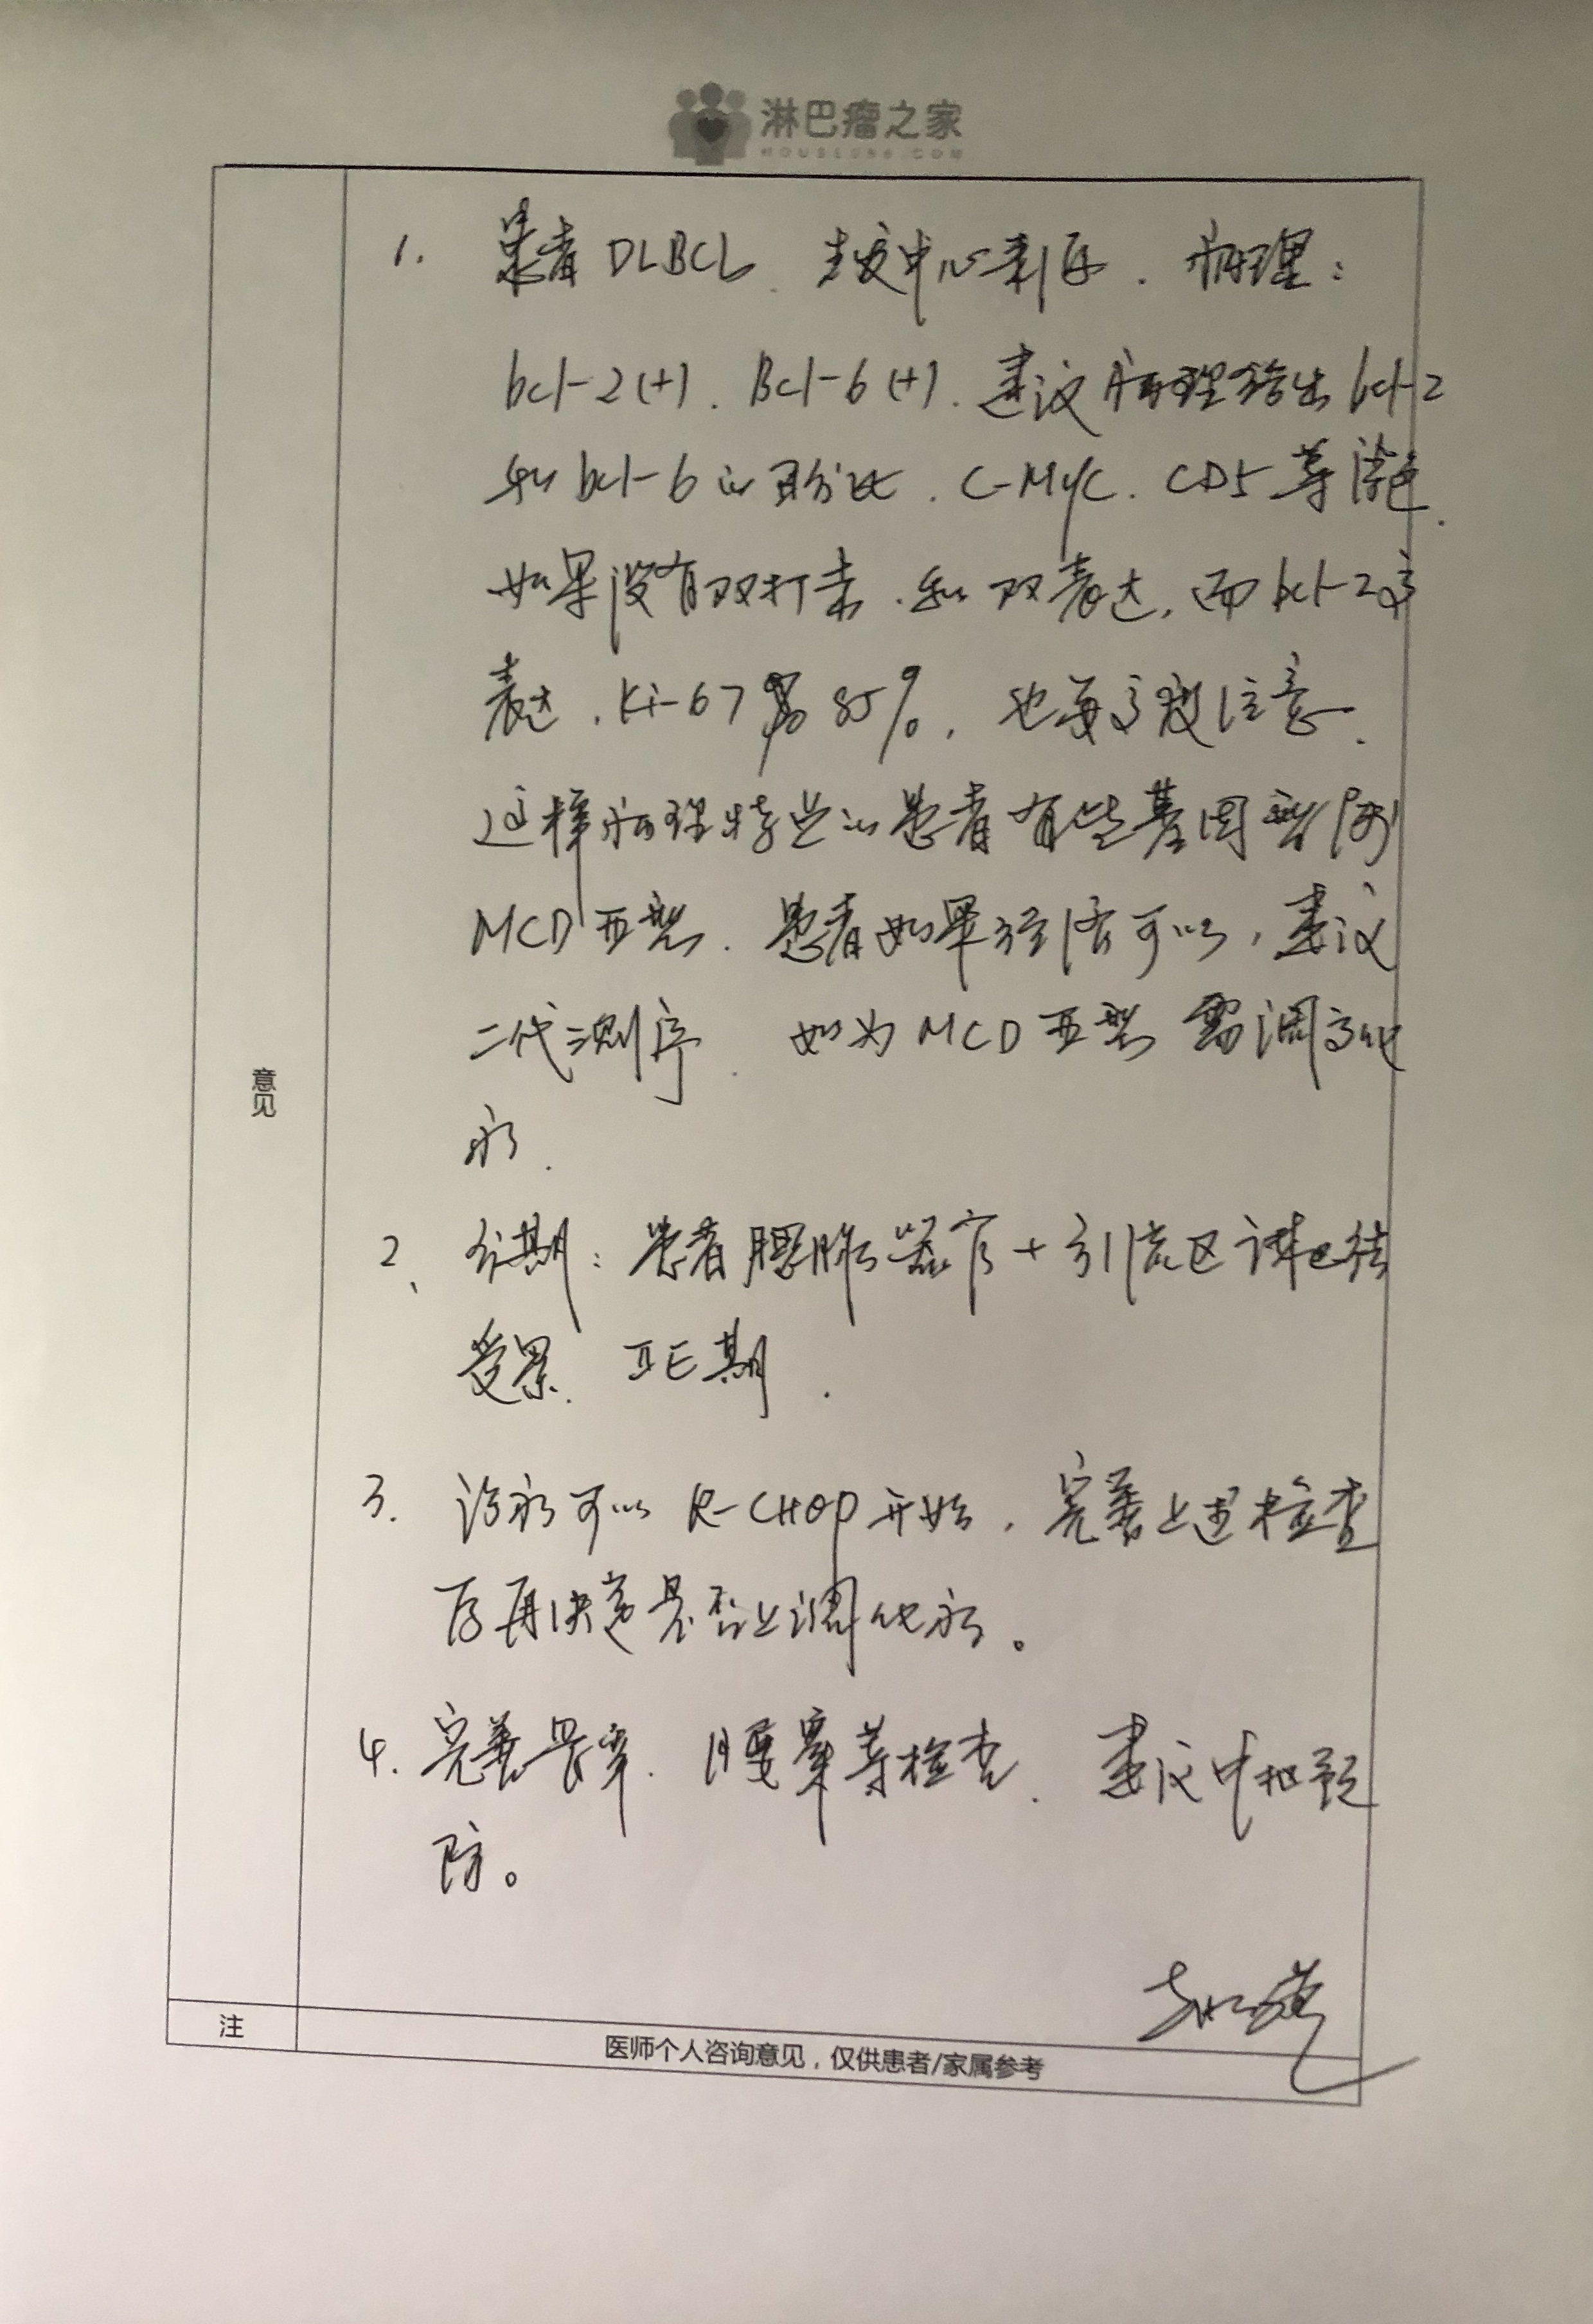 淋巴瘤之家
HOUSE086.COM
意见
1. 患者DLBCL. 生发中心来源. 病理:
bcl-2(+). Bcl-6(+). 建议病理给出bcl-2
和bcl-6的百分比. C-MYC. CD5等染色.
如果没有双打击.和双表达, 而bcl-2高
表达. Ki-67 85%, 也要高度注意.
这样病理特点的患者有些基因
MCD亚型. 患者如果经济可以, 建议
二代测序. 如为MCD亚型 需调方化
疗.
2、分期: 患者 器官+引流区淋巴结
受累. ⅡE期.
3. 治疗可以R-CHOP开始, 完善上述检查
后再决定是否上调化疗。
4. 完善骨穿. 腰穿等检查. 建议中枢预
防。
注
医师个人咨询意见，仅供患者/家属参考